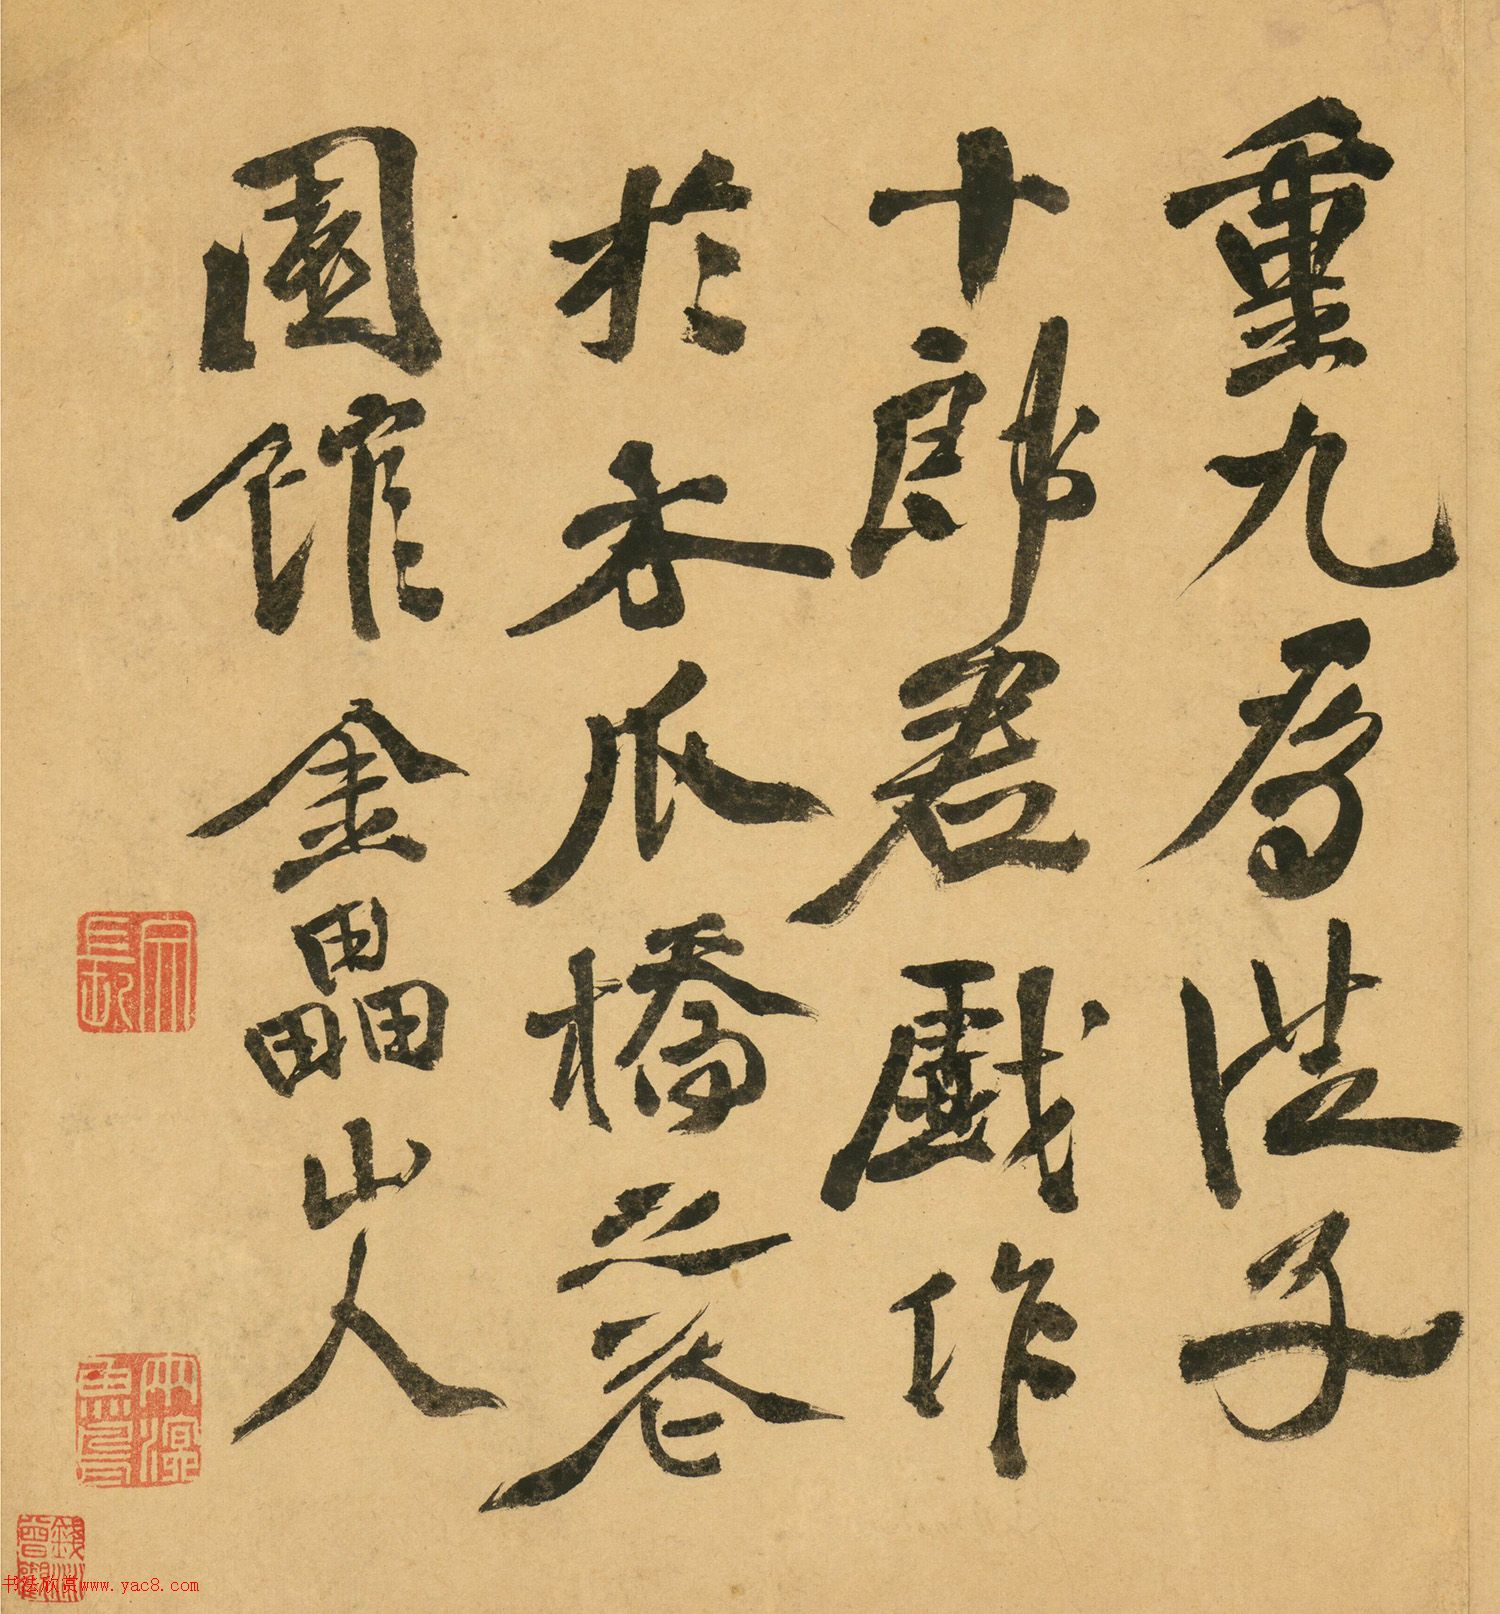 重九為湛子
十郎君戲作
於木瓜橋之巷
園館金畾山人
书法欣赏www.yac8.com